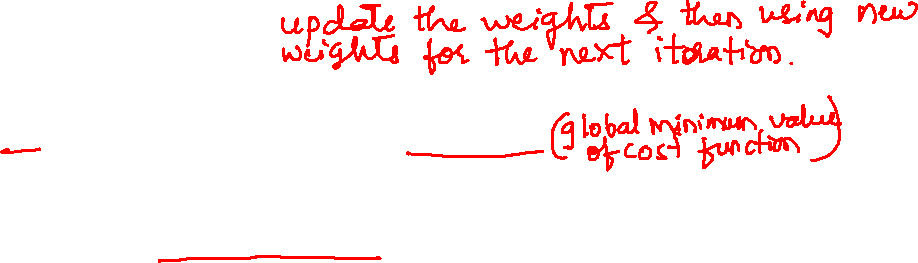 update the weights & then using new
weights for the next iteration.
(global minimum value
of cost function)